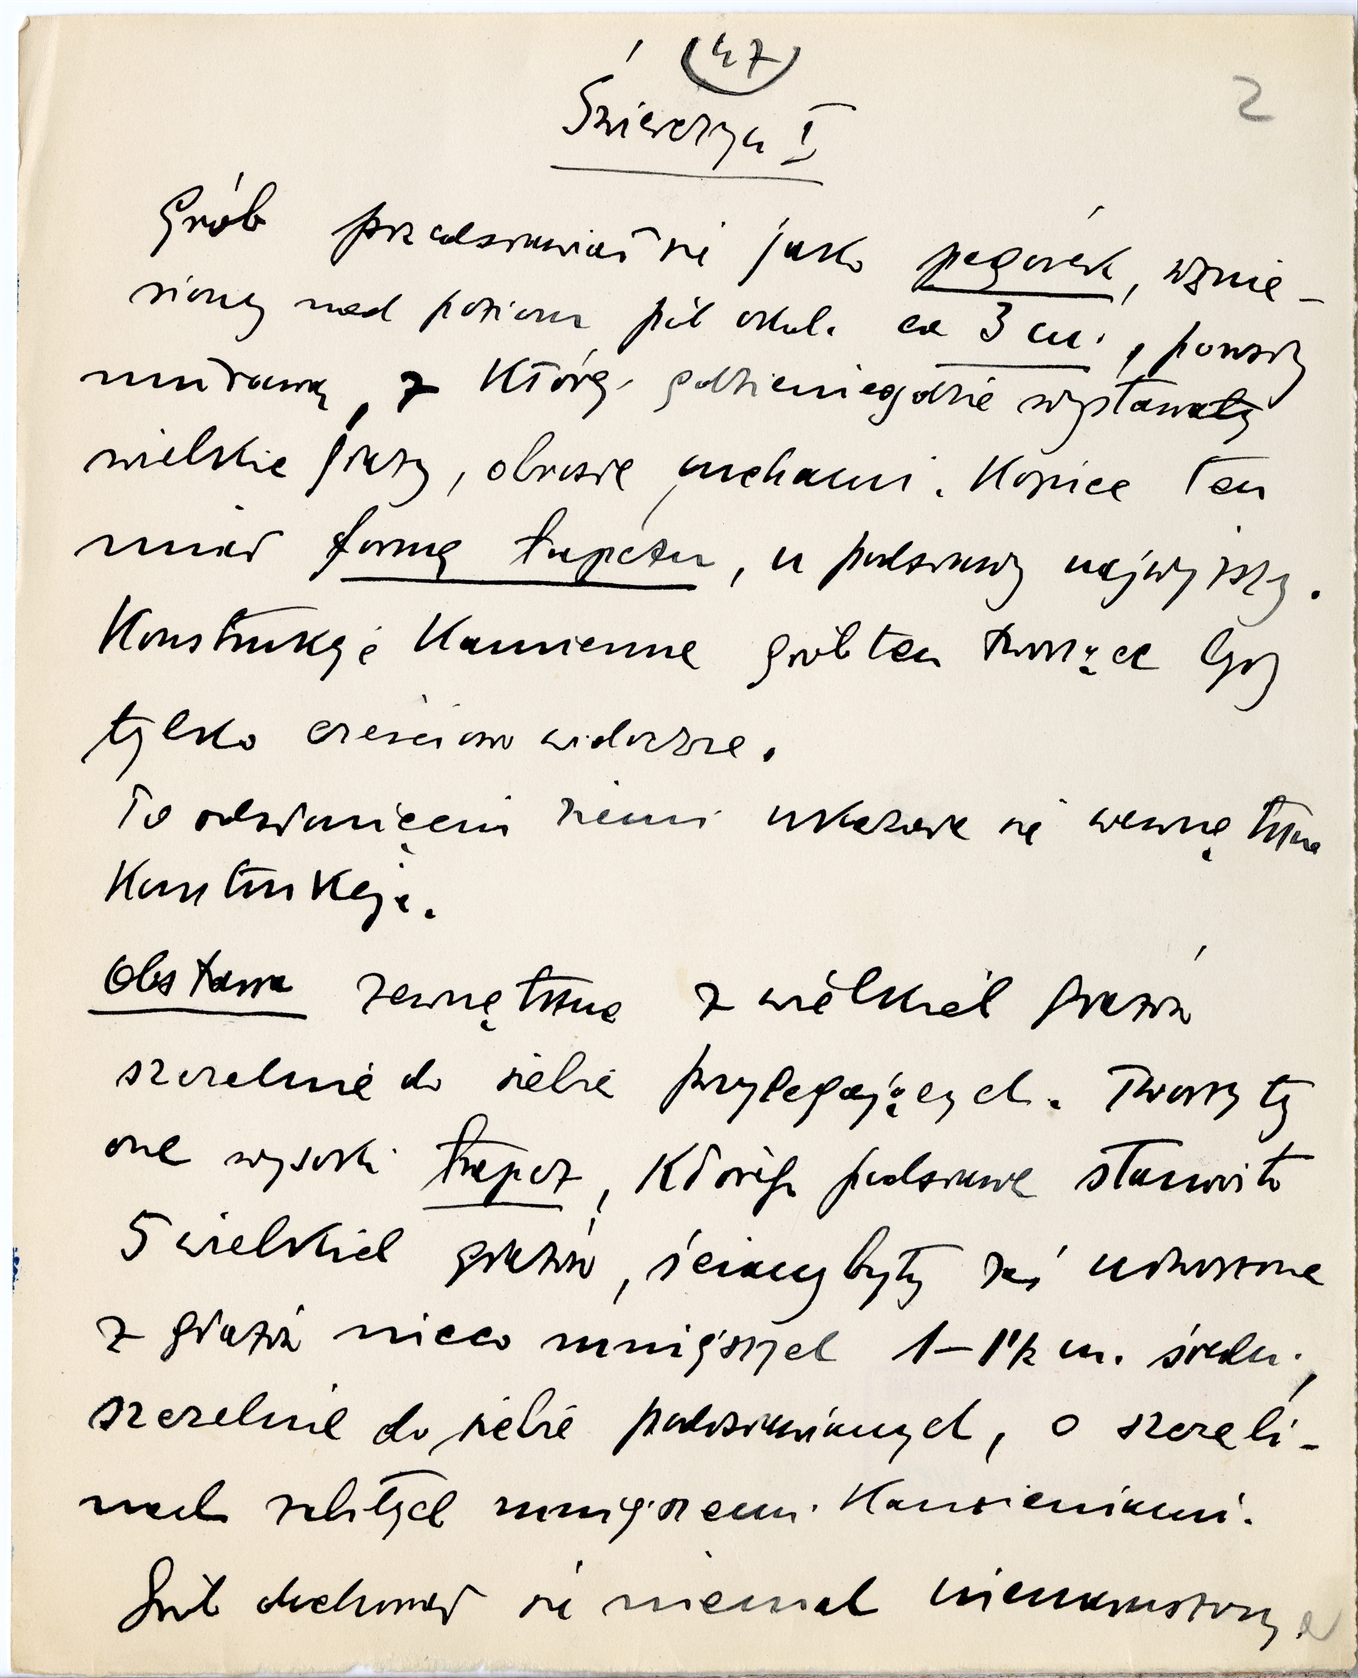 47
2
Świerczyn I
Grób przedstawiał się jako pagórek, wznie-
siony nad poziom pól okol. ca 3 m.,
murawą, z której gdzieniegdzie wystawały
wielkie głazy, obrosłe mchami. Kopiec ten
miał formę trapezu, u podstawy najwyższy.
Konstrukcje kamienne grób ten tworzące były
tylko cześciowo widoczne.
Po odsłonięciu ziemi ukazała się wewnętrzna
konstrukcja.
Obstawa zewnętrzna z wielkich głazów
szczelnie do siebie przylegających. Tworzyły
one wysoki trapez, którego podstawę stanowiło
5 wielkich głazów, ściany były zaś utworzone
z głazów nieco mniejszych 1–1½ m. średn.,
szczelnie do siebie podostawianych, o szczeli-
nach zabitych mniejszemi kamieniami.
Grób dochował się niemal nienaruszony.